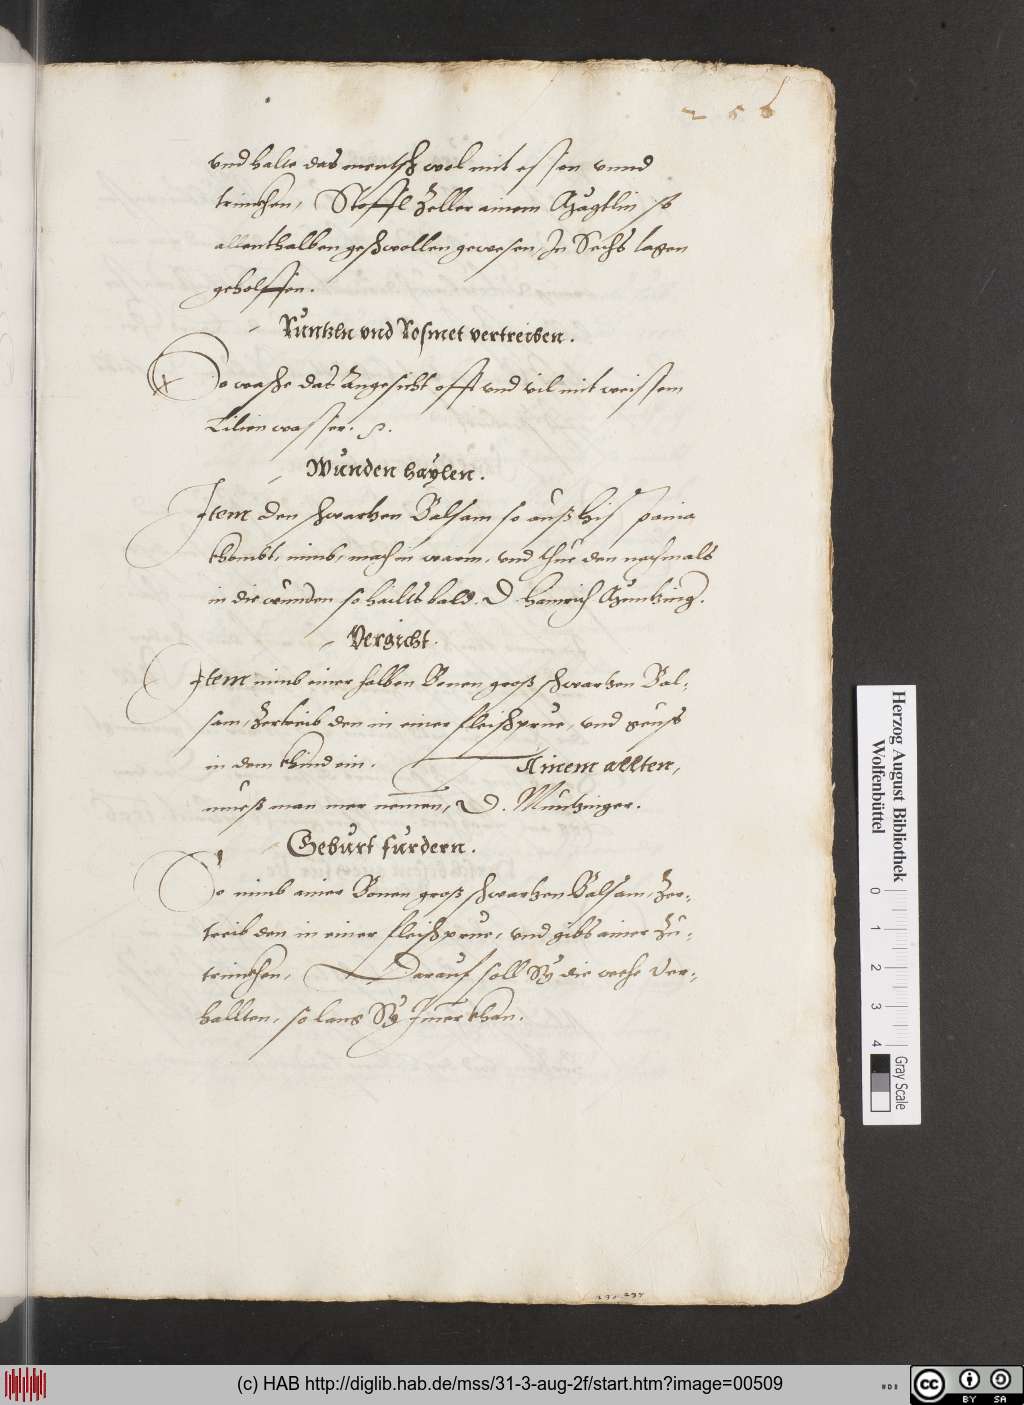 256
vnd halte das mentsch wol mit essen vnnd
trinckhen, Stoffl Zeller ainem Magtlin so
allenthalben geschwollen gewesen, In Sechs tagen
geholffen.
Runtzln vnd Rosmet vertreiben.
So wasche das Angesicht offt vnd vil mit weissem
Lilien wasser.
Wunden haylen.
Item den schwartzen Balsam so auß hispania
khombt, nimb, mach in warm, vnd thue den nachmals
in die wunden so hailts bald. D. Hainrich Muntzing.
Vergicht.
Item nimb einer halben Bonen groß schwartzen Bal-
sam, Zertreib den in einer fleischprue, vnd geuß
in dem khind ein. Ainem allten,
mueß man mer nemen, D. Muntzinger.
Geburt furdern.
So nimb ainer Bonen groß schwartzen Balsam, Zer-
treib den in einer fleischprue, vnd gibs ainer Zu-
trinckhen, Darauf soll Sy die wehe Ver-
hallten, so lang Sy Imer khan.
Herzog August Bibliothek
Wolfenbüttel
0 1 2 3 4
Gray Scale
(c) HAB http://diglib.hab.de/mss/31-3-aug-2f/start.htm?image=00509
cc BY SA